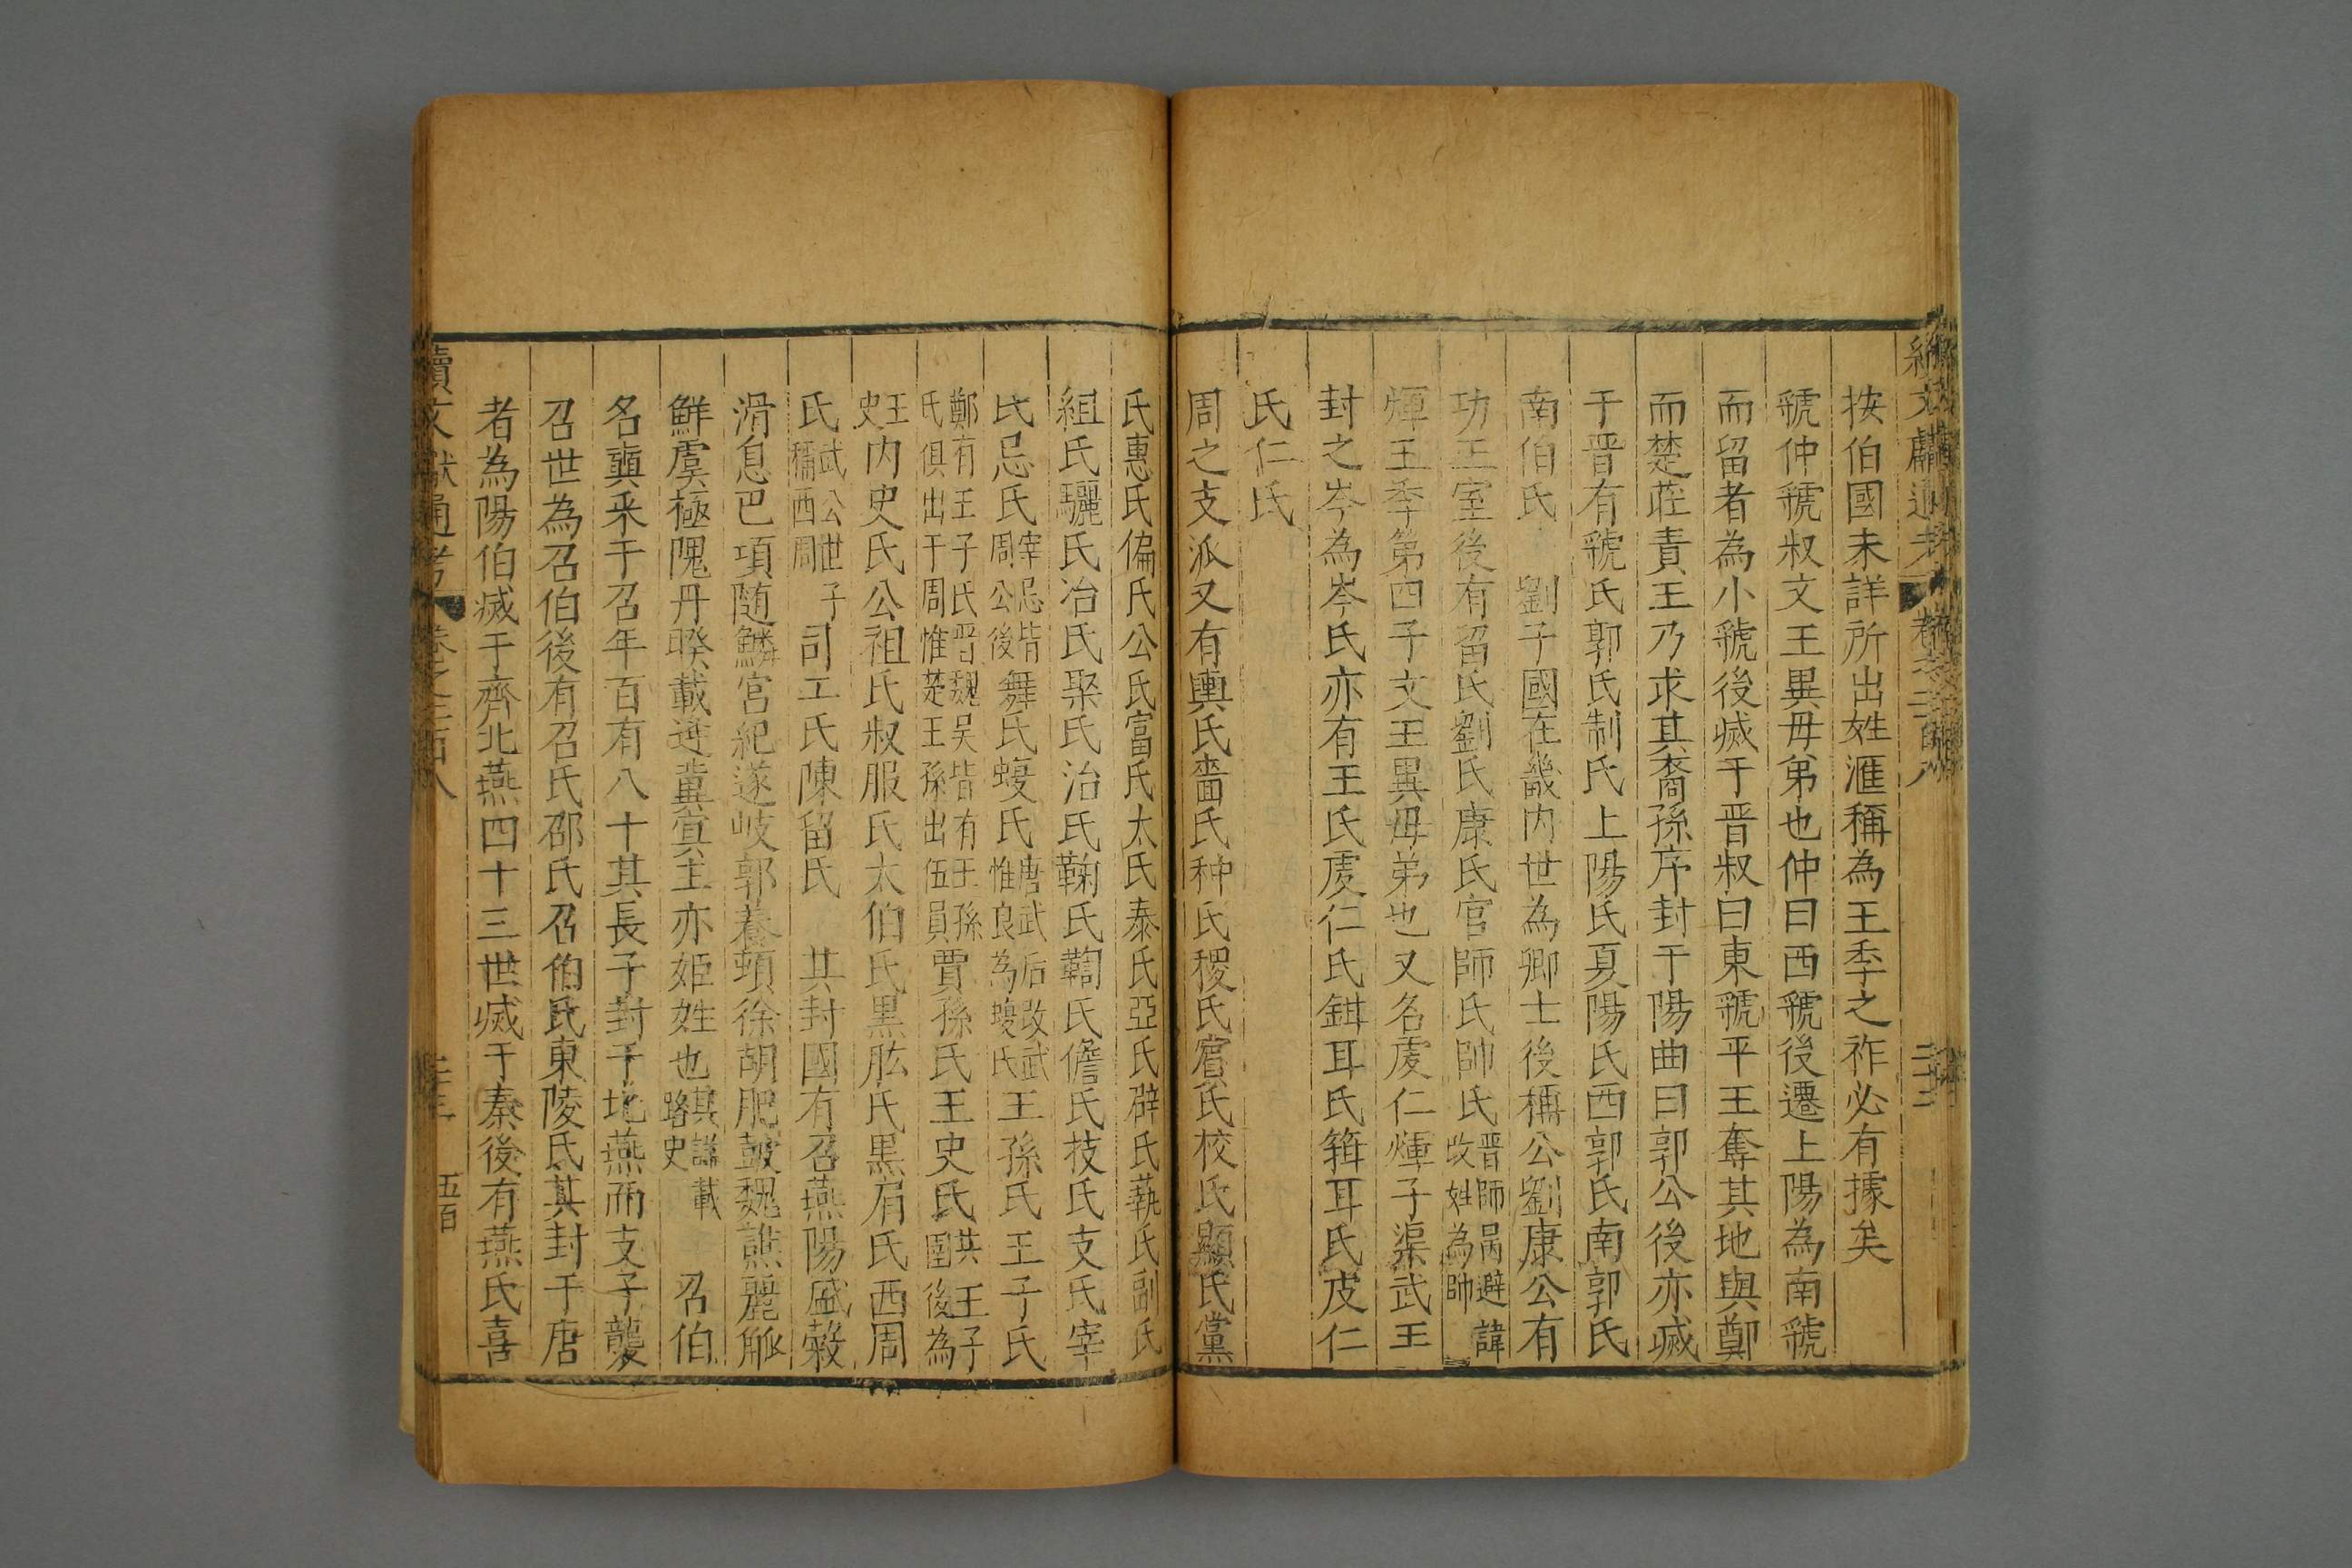 按伯國未詳所出姓滙稱為王季之祚必有據矣
虢仲虢叔文王異毋弟也仲曰西虢後遷上陽為南虢
而留者為小虢後滅于晋叔曰東虢平王奪其地與鄭
而楚莊責王乃求其裔孫序封于陽曲曰郭公後亦滅
于晋有虢氏郭氏制氏上陽氏夏陽氏西郭氏南郭氏
南伯氏 劉子國在畿内世為卿士後稱公劉康公有
功王室後有留氏劉氏康氏官師氏帥氏晋師昺避諱改姓為帥
煇王季第四子文王異毋弟也又名虔仁煇子渠武王
封之岑為岑氏亦有王氏虔仁氏鉺耳氏箝耳氏皮仁
氏仁氏
周之支派又有輿氏嗇氏种氏稷氏宿氏校氏顯氏黨
氏惠氏偏氏公氏富氏太氏泰氏亞氏辟氏執氏副氏
組氏驪氏冶氏聚氏治氏鞠氏鞫氏儋氏技氏支氏宰
氏忌氏宰忌皆周公後舞氏蝮氏唐武后改武惟良為蝮氏王孫氏王子氏
鄭有王子氏晋魏吴皆有王孫氏俱出于周惟楚王孫出伍員賈孫氏王史氏共王子圉後為
王史内史氏公祖氏叔服氏太伯氏黒肱氏黒肩氏西周
氏武公世子稱西周司工氏陳留氏 其封國有召燕陽盛榖
滑息巴項随鱗官紀遂岐郭養頓徐胡肥鼓魏譙麗觚
鮮虞極隗丹暌載逆冀寘主亦姬姓也其譜載路史 召伯
名奭采于召年百有八十其長子封于北燕而支子襲
召世為召伯後有召氏邵氏召伯氏東陵氏其封于唐
者為陽伯滅于齊北燕四十三世滅于秦後有燕氏喜
續文獻通考 卷之二百八 五百